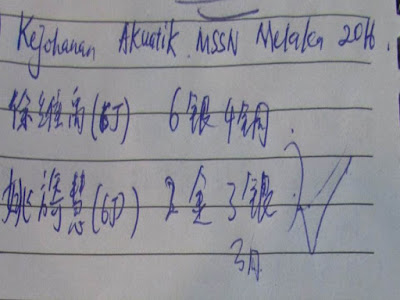 Kejohanan Akuatik MSSN Melaka 2016.
徐維高(6J) 6银4铜
姚濤慧(6J) 2金3银
3月